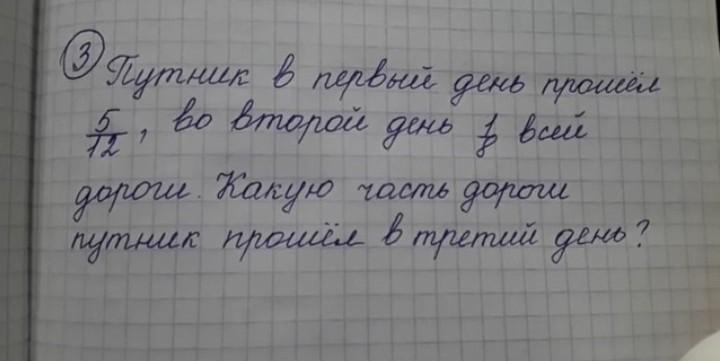 3 Путник в первый день прошёл
5/12, во второй день 1/8 всей
дороги. Какую часть дороги
путник прошёл в третий день?